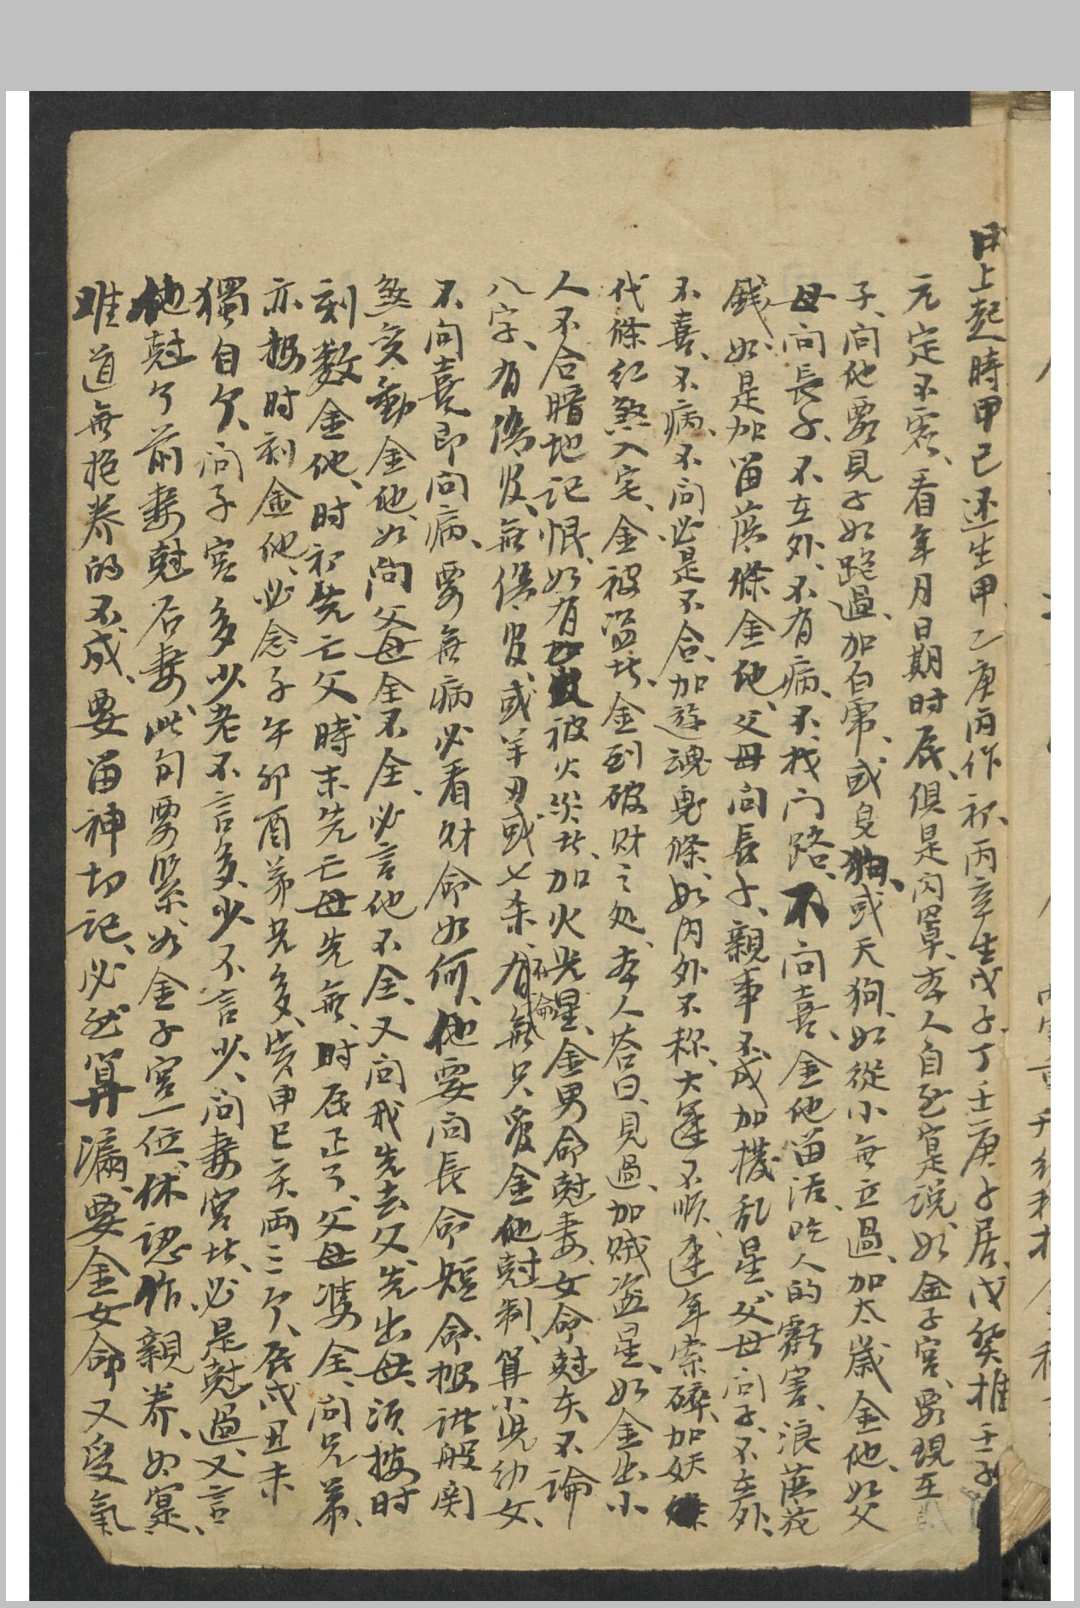 日上起時甲己还生甲乙庚丙作初丙辛生戊子丁壬庚子居戊癸推壬子
元定不零看年月日期时辰俱是闪罩本人自至寔説如金子宫要現在
子问他要見子如跪過加白常或身犯或天狗如從小無立過加太歲金他如父
母问長子不在外不有病不找门路不问喜金他留活吃人的虧害浪蕩花
錢如是加留蕩條金他父母问長子親事不成加攪乱星父母问子不在外
不喜不病不问必是不合加遊魂鬼條如内外不称大運不順連年索碎加妖
代條红煞入宅金被盗者金到破财之处本人答曰見過加贼盗星如金出小
人不合暗地記恨如有被火災者加火光星金男命尅妻女命尅夫不論
八字有傷没無傷没或羊刃或七杀有無只管金他尅制算小児幼女
不问喜即问病要無病必看财命如何他要问長命短命报諸般関
煞亥動金他如问父母全不全必言他不全又问我先去父先出母须按时
刻数金他时初先亡父時末先亡母先無时辰正了父母双全问兄弟
亦按时刻金他必念子午卯酉弟兄多寅申巳亥両三个辰戌丑未
獨自个问子宫多少老不言多少不言少问妻宫者必是尅過又言
他尅了前妻尅后妻此句要緊如金子宫一位休認作親养如寔
难道無抱养的不成要留神切記必然算漏要金女命又受氣